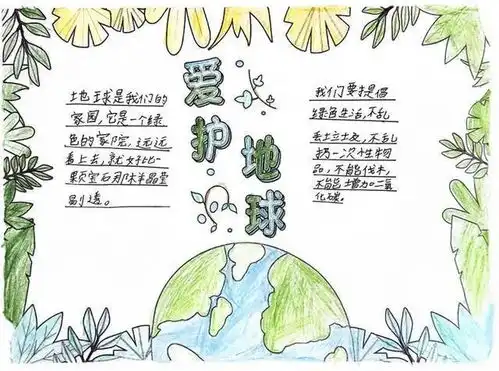 爱护
地球
地球是我们的
家园,它是一个绿
色的家院,远远
看上去,就好比一
颗宝石那样晶莹
剔透。
我们要提倡
绿色生活,不乱
丢垃圾,不乱
扔一次性物
品,不能伐木,
不能增加二氧
化碳。